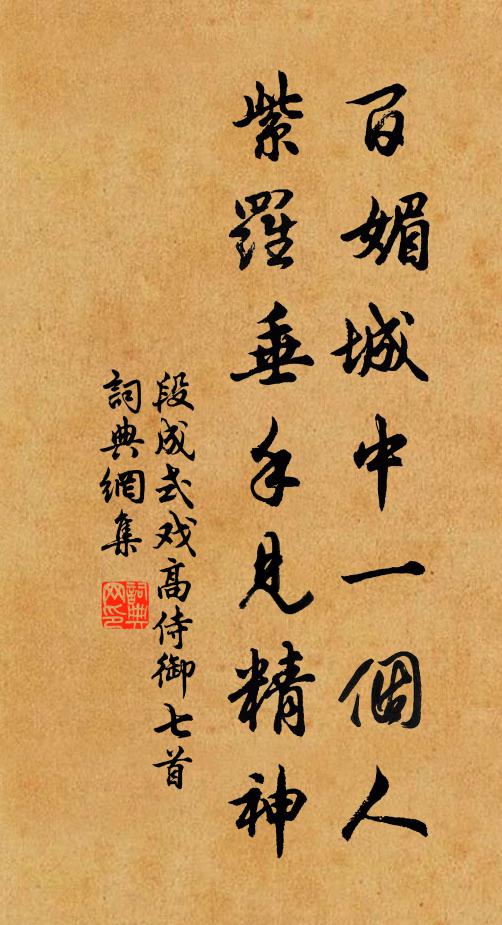 百媚城中一個人
紫羅垂手見精神
段成式戏高侍御七首
詞典網集
詞典
网印